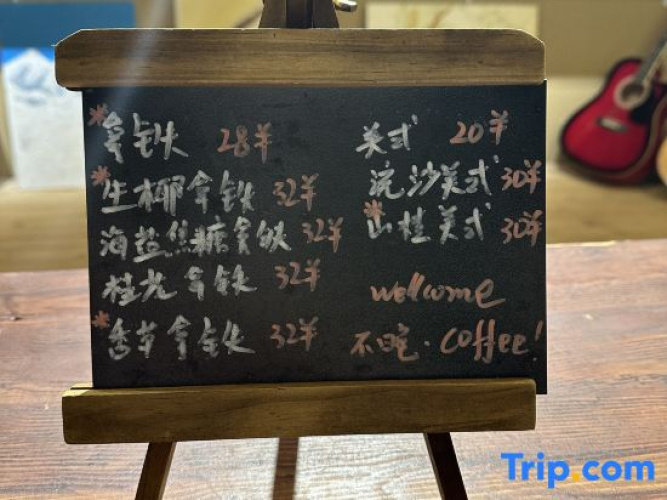 *拿铁 28¥
*生椰拿铁 32¥
海盐焦糖拿铁 32¥
桂花拿铁 32¥
*香草拿铁 32¥
美式 20¥
流沙美式 30¥
*山楂美式 30¥
wellcome
不晚·coffee!
Trip.com